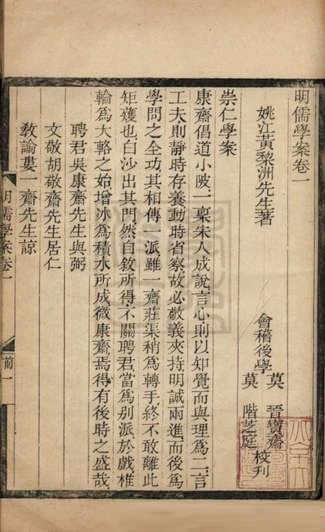 明儒學案卷一
姚江黃黎洲先生著
會稽後學
莫晉寶齋
莫階芝庭
校刊
崇仁學案
康齋倡道小陂一稟宋人成說言心則以知覺而與理爲二言
工夫則靜時存養動時省察故必敬義夾持明誠兩進而後爲
學問之全功其相傳一派雖一齋莊渠稍爲轉手終不敢離此
矩矱也白沙出其門然自敘所得不關聘君當爲別派於戲椎
輪爲大輅之始增冰爲積水所成微康齋焉得有後時之盛哉
聘君吳康齋先生與弼
文敬胡敬齋先生居仁
敎諭婁一齋先生諒
明儒學案卷一
前一